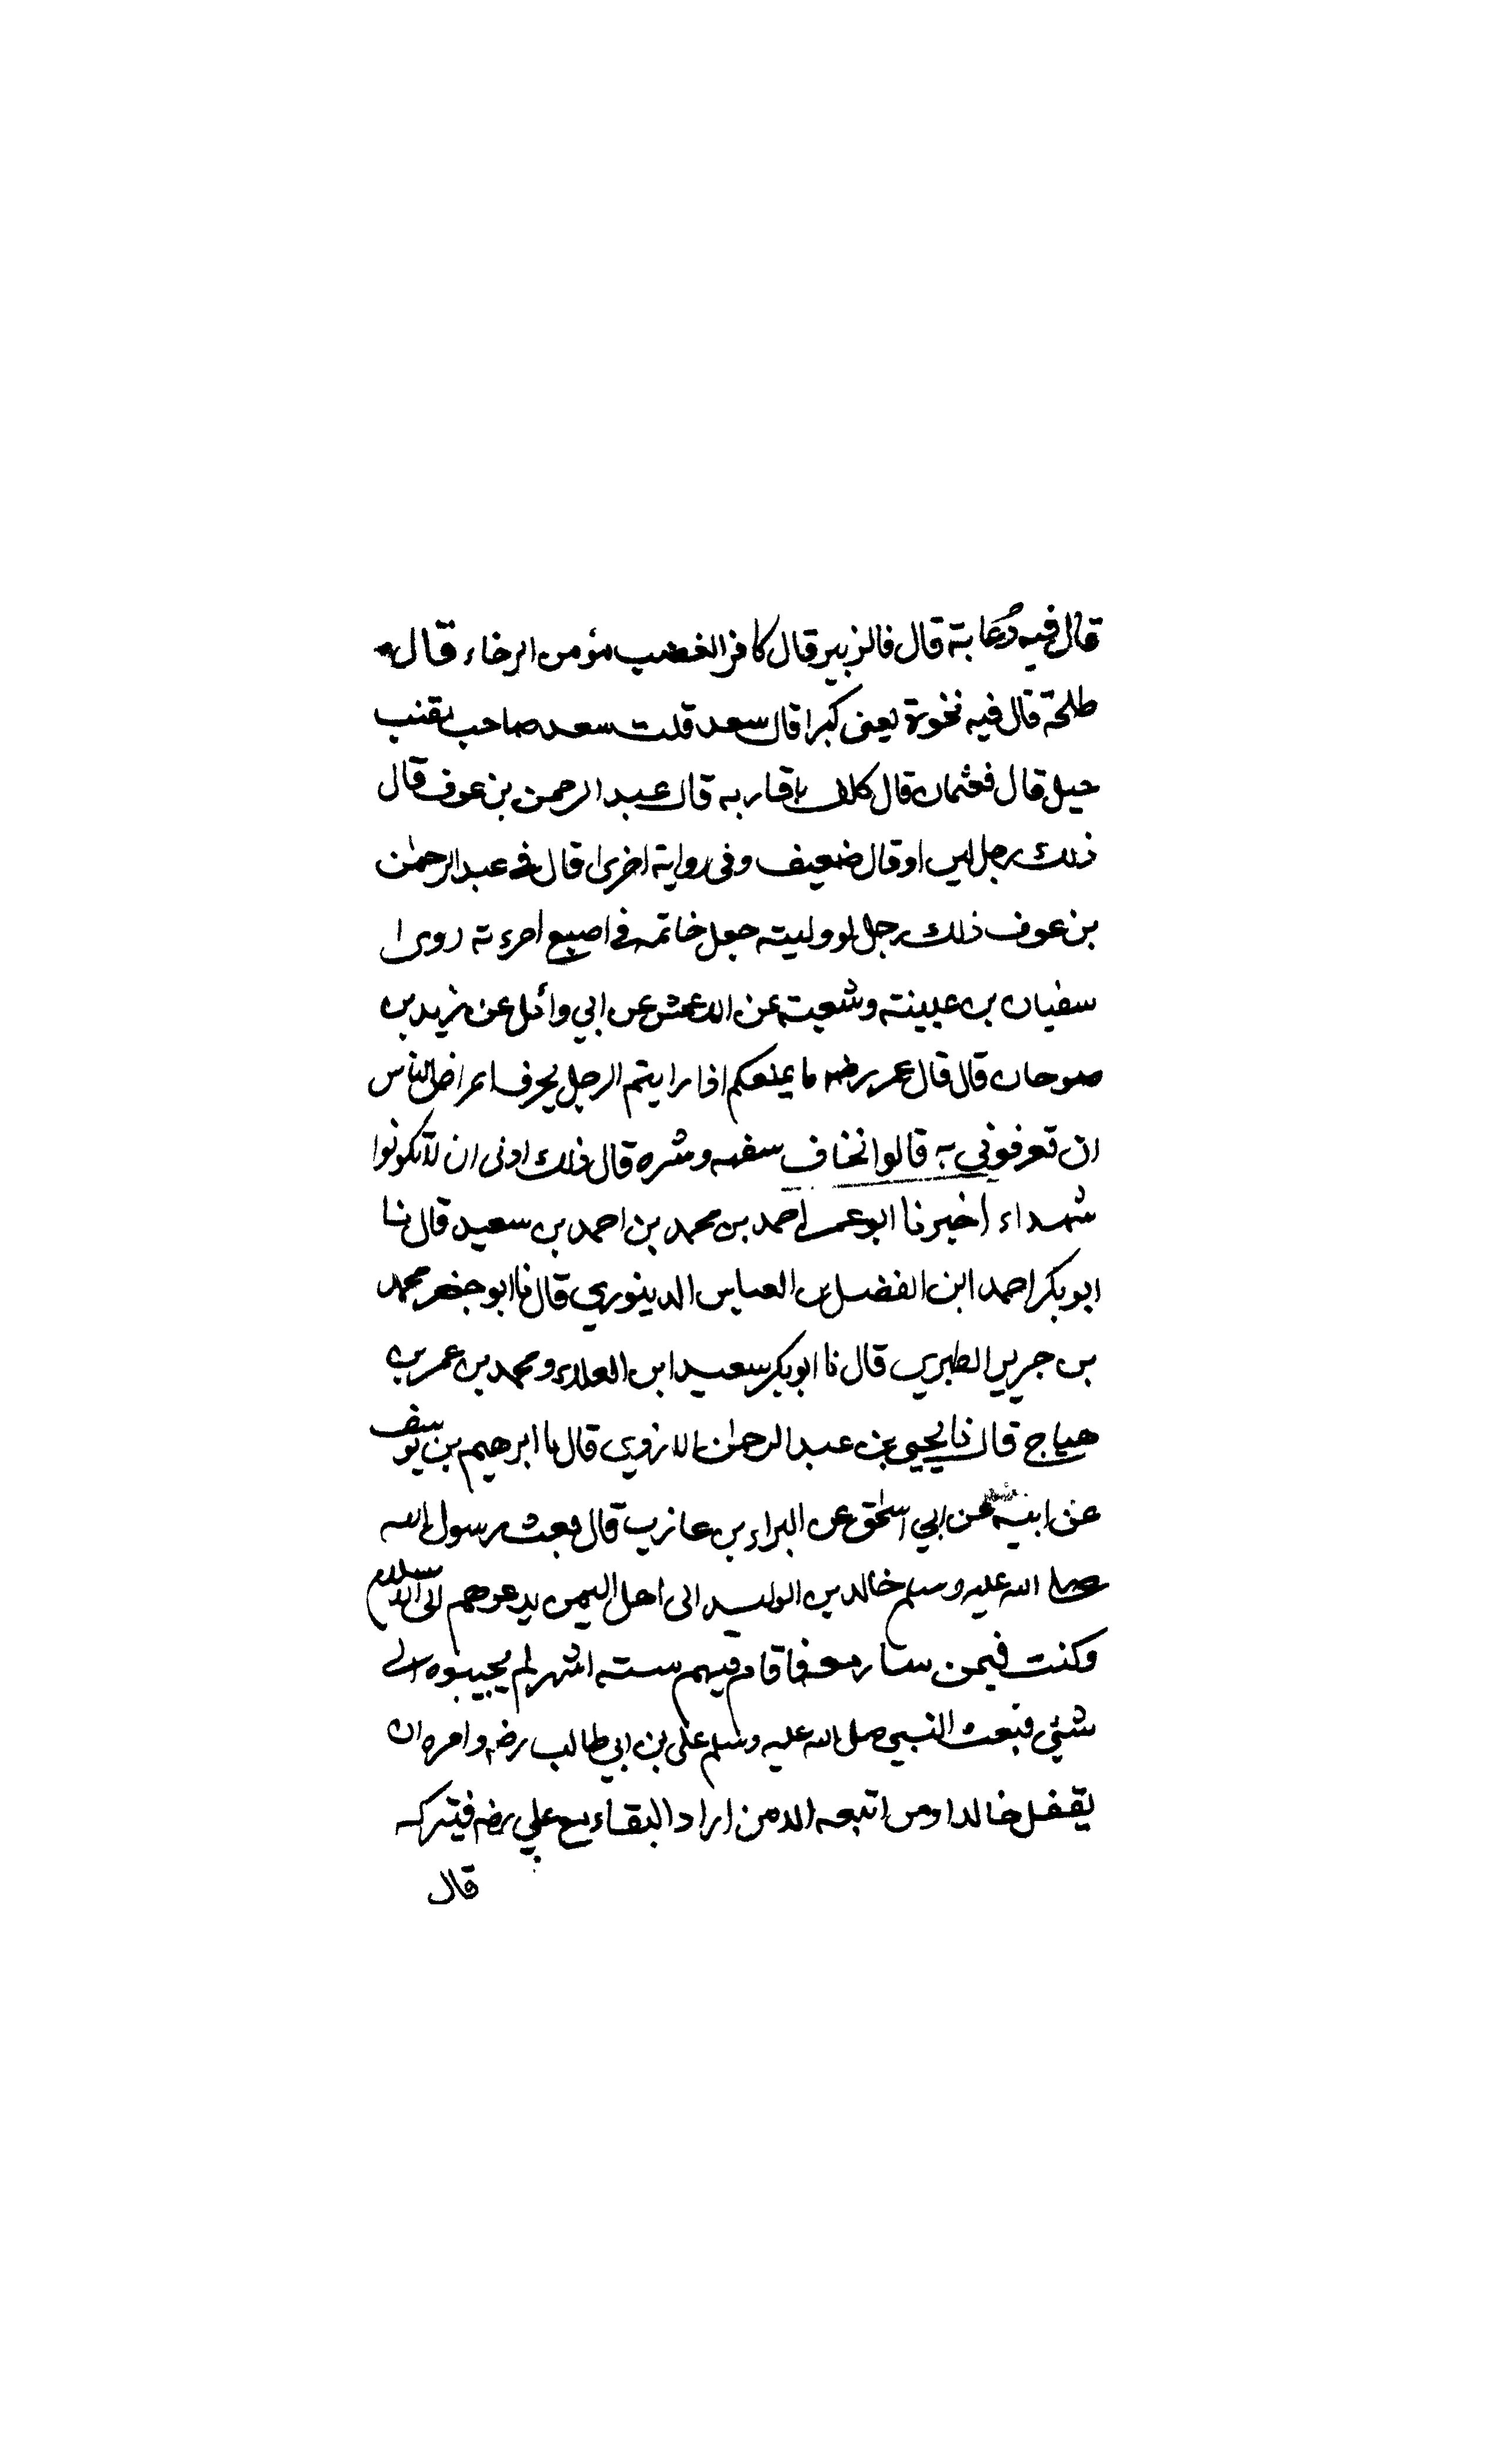 قال فيه دُعَابة قال فالزبير قال كافر الغضب مؤمن الرضاء قال
طلحة قال فيه نخوة يعنى كبرا قال سعد قلت سعد صاحب مقنب
خيل قال فعثمان قال كلف باقاربه قال عبد الرحمن بن عوف قال
ذلك رجل لين او قال ضعيف وفى رواية اخرى قال فى عبد الرحمٰن
بن عوف ذلك رجل لو وليته جعل خاتمه فى اصبع امرءته روى
سفيان بن عيينة وشعبة عن الاعمش عن ابي وائل عن زيد بن
صوحان قال قال عمر رضه ما يمنعكم اذا رايتم الرجل يحرف اعراض الناس
ان تعرفوني به قالوا نخاف سفهه وشره قال ذلك ادنى ان لا تكونوا
شهداء اخبرنا ابو عمر احمد بن محمد بن احمد بن سعيد قال نا
ابو بكر احمد ابن الفضل بن العباس الدينوري قال نا ابو جعفر محمد
بن جرير الطبري قال نا ابو بكر سعيد ابن العلاء ومحمد بن عمر بن
هياج قال نا يحيى بن عبد الرحمٰن الازوي قال نا ابرهيم بن يوسف
عن ابيه عن ابي اسحٰق عن البراء بن عازب قال بعث رسول الله
صلى الله عليه وسلم خالد بن الوليد الى اهل اليمن يدعوهم الى الاسلام
وكنت فيمن سار معه فاقام فيهم ستة اشهر لم يجيبوه الى
شئي فبعث النبي صلى الله عليه وسلم على بن ابي طالب رضه وامره ان
يقفل خالدا ومن اتبعه الا من اراد البقاء مع علي رضه فيتركه
قال